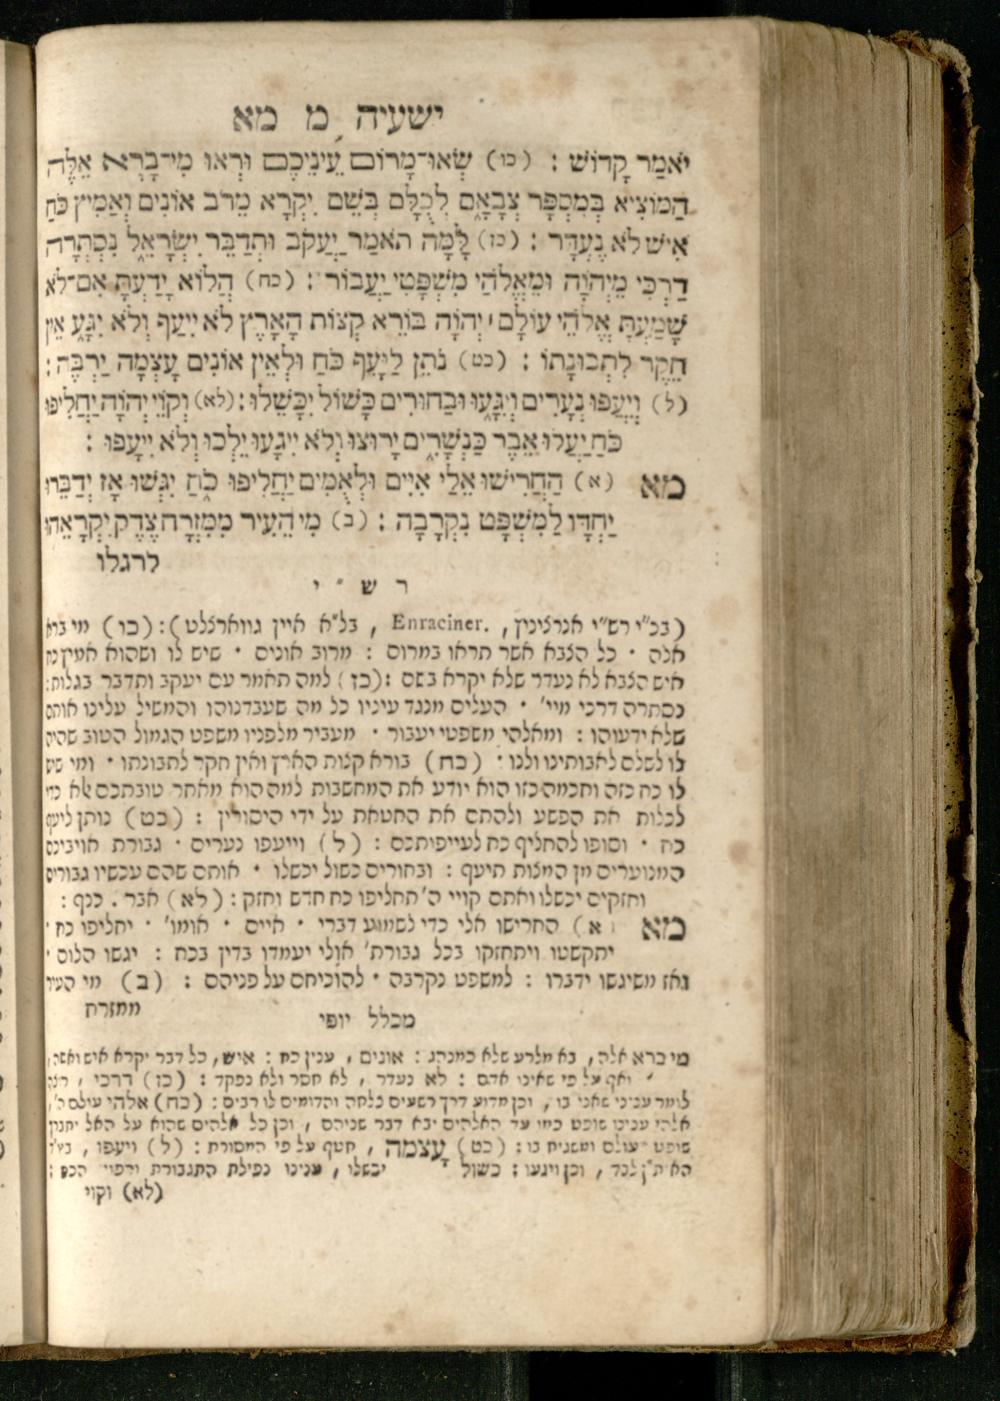 ישעיה מ מא
יֹאמַר קָדוֹשׁ : (כו) שְׂאוּ־מָרוֹם עֵינֵיכֶם וּרְאוּ מִי־בָרָא אֵלֶּה
הַמוֹצִיא בְּמִסְפָּר צְבָאָם לְכֻלָּם בְּשֵׁם יִקְרָא מֵרֹב אוֹנִים וְאַמִּיץ כֹּחַ
אִישׁ לֹא נֶעְדָּר : (כז) לָמָּה תֹאמַר יַעֲקֹב וּתְדַבֵּר יִשְׂרָאֵל נִסְתְּרָה
דַרְכִּי מֵיְהֹוָה וּמֵאֱלֹהַי מִשְׁפָּטִי יַעֲבוֹר : (כח) הֲלוֹא יָדַעְתָּ אִם־לֹא
שָׁמַעְתָּ אֱלֹהֵי עוֹלָם יְהֹוָה בּוֹרֵא קְצוֹת הָאָרֶץ לֹא יִיעַף וְלֹא יִיגָע אֵין
חֵקֶר לִתְבוּנָתוֹ : (כט) נֹתֵן לַיָּעֵף כֹּחַ וּלְאֵין אוֹנִים עָצְמָה יַרְבֶּה :
(ל) וְיִעֲפוּ נְעָרִים וְיִגָעוּ וּבַחוּרִים כָּשׁוֹל יִכָּשֵׁלוּ : (לא) וְקוֵֹי יְהֹוָה יַחֲלִיפוּ
כֹחַ יַעֲלוּ אֵבֶר כַּנְשָׁרִים יָרוּצוּ וְלֹא יִיגָעוּ יֵלְכוּ וְלֹא יִיעָפוּ :
מא (א) הַחֲרִישׁוּ אֵלַי אִיִּים וּלְאֻמִּים יַחֲלִיפוּ כֹחַ יִגְּשׁוּ אָז יְדַבֵּרוּ
יַחְדָּו לַמִּשְׁפָּט נִקְרָבָה : (ב) מִי הֵעִיר מִמִּזְרָח צֶדֶק יִקְרָאֵהוּ
לרגלו
ר ש״י
(בכ״י רש״י אנרצינין, Enraciner. , בל״א איין ווארצלט) : (כו) מי ברא
אלה · כל הצבא אשר תראו במרום : מרוב אונים · שיש לו ושהוא אמיץ כח
איש הצבא לא נעדר שלא יקרא בשם : (כז) למה תאמר עם יעקב ותדבר בגלות :
נסתרה דרכי מיי׳ · העלים מנגד עיניו כל מה שעבדנוהו והמשיל עלינו אותם
שלא ידעוהו : ומאלהי משפטי יעבור · מעביר מלפניו משפט הגמול הטוב שהיה
לו לשלם לאבותינו ולנו · (כח) בורא קצות הארץ ואין חקר לתבונתו · ומי שיש
לו כח כזה וחכמה כזו הוא יודע את המחשבות למה הוא מאחר טובתכם אלא כדי
לכלות את הפשע ולהתם את החטאת על ידי היסורין : (כט) נותן ליעף
כח · וסופו להחליף כח לעייפותכם : (ל) וייעפו נערים · גבורת אויביכם
המנוערים מן המצות תיעף : ובחורים כשול יכשלו · אותם שהם עכשיו גבורים
וחזקים יכשלו ואתם קויי ה׳ תחליפו כח חדש וחזק : (לא) אבר . כנף :
מא (א) החרישו אלי כדי לשמוע דברי · איים · אומו׳ · יחליפו כח ·
יתקשטו ויתחזקו בכל גבורת׳ אולי יעמדו בדין בכח : יגשו הלום ·
ואז משיגשו ידברו : למשפט נקרבה · להוכיחם על פניהם : (ב) מי העיר
ממזרח
מכלל יופי
מי ברא אלה, בא מלרע שלא כמנהג : אונים , ענין כח : איש, כל דבר יקרא איש ואשה,
ואף על פי שאינו אדם : לא נעדר , לא חסר ולא נפקד : (כז) דרכי , רצה
לומר עניני שאני בו , וכן מדוע דרך רשעים צלחה והדומים לו רבים : (כח) אלהי עולם ה׳,
אלהי ענינו שופט כמו עד האלהים יבא דבר שניהם , וכן כל אלהים שהוא על האל יתברך
שופט העולם ומשגיח בו : (כט) עָצְמה , חטף על פי המסורת : (ל) ויעפו ,
, וכן ויגעו : כשול יכשלו , ענינו נפילת התגבורת ורפוי הכח :
(לא) וקוי